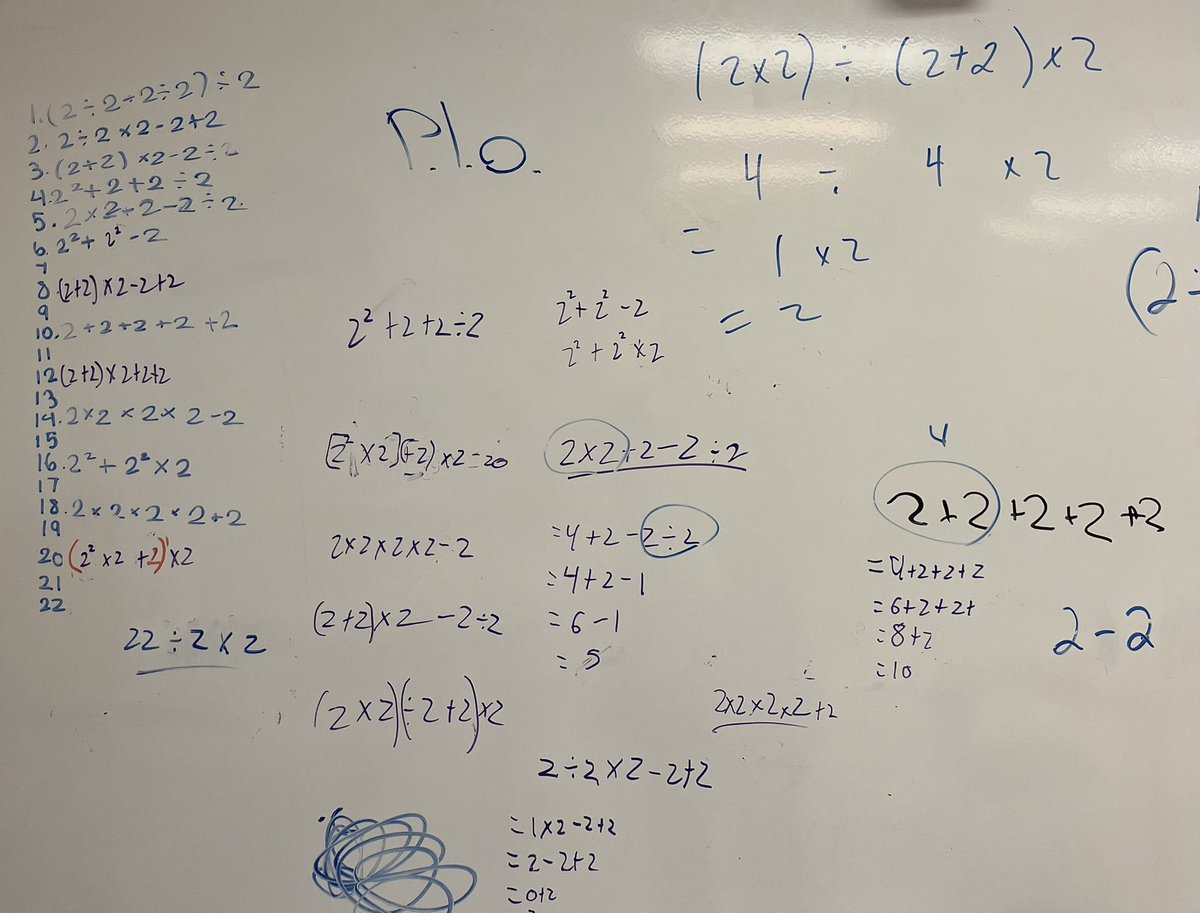 1. (2÷2+2÷2)÷2
2. 2÷2×2-2+2
3. (2+2)×2-2÷2
4. 2²+2+2÷2
5. 2×2+2-2÷2
6. 2²+2²-2
7
8 (2+2)×2-2+2
9
10. 2+2+2+2+2
11
12 (2+2)×2+2+2
13
14. 2×2×2×2-2
15
16. 2²+2²×2
17
18. 2×2×2×2+2
19
20 (2²×2+2)×2
21
22
22÷2×2
P.I.O.
2²+2+2÷2
2²+2²-2
2²+2²×2
×2=20
2×2×2×2-2
(2+2)×2-2÷2
(2×2)(÷2+2)×2
2×2+2-2÷2
=4+2-2÷2
=4+2-1
=6-1
=5
2÷2×2-2+2
=1×2-2+2
=2-2+2
=0+2
(2×2)÷(2+2)×2
4 ÷ 4 ×2
= 1×2
= 2
(2÷
4
2+2+2+2+2
=4+2+2+2
=6+2+2+
=8+2
=10
2-2
2×2×2×2+2